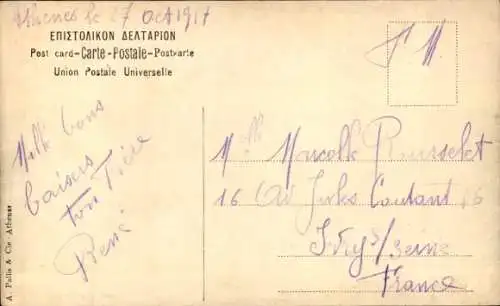 Athenes le 27 Oct 1917
ΕΠΙΣΤΟΛΙΚΟΝ ΔΕΛΤΑΡΙΟΝ
Post card-Carte-Postale-Postkarte
Union Postale Universelle
F M
Mille bons
baisers
Ton Frère
René
A. Pallis & Cie-Athènes
Mlle Marcelle
16 Av Jules Coutant 16
Ivry s/ Seine
France